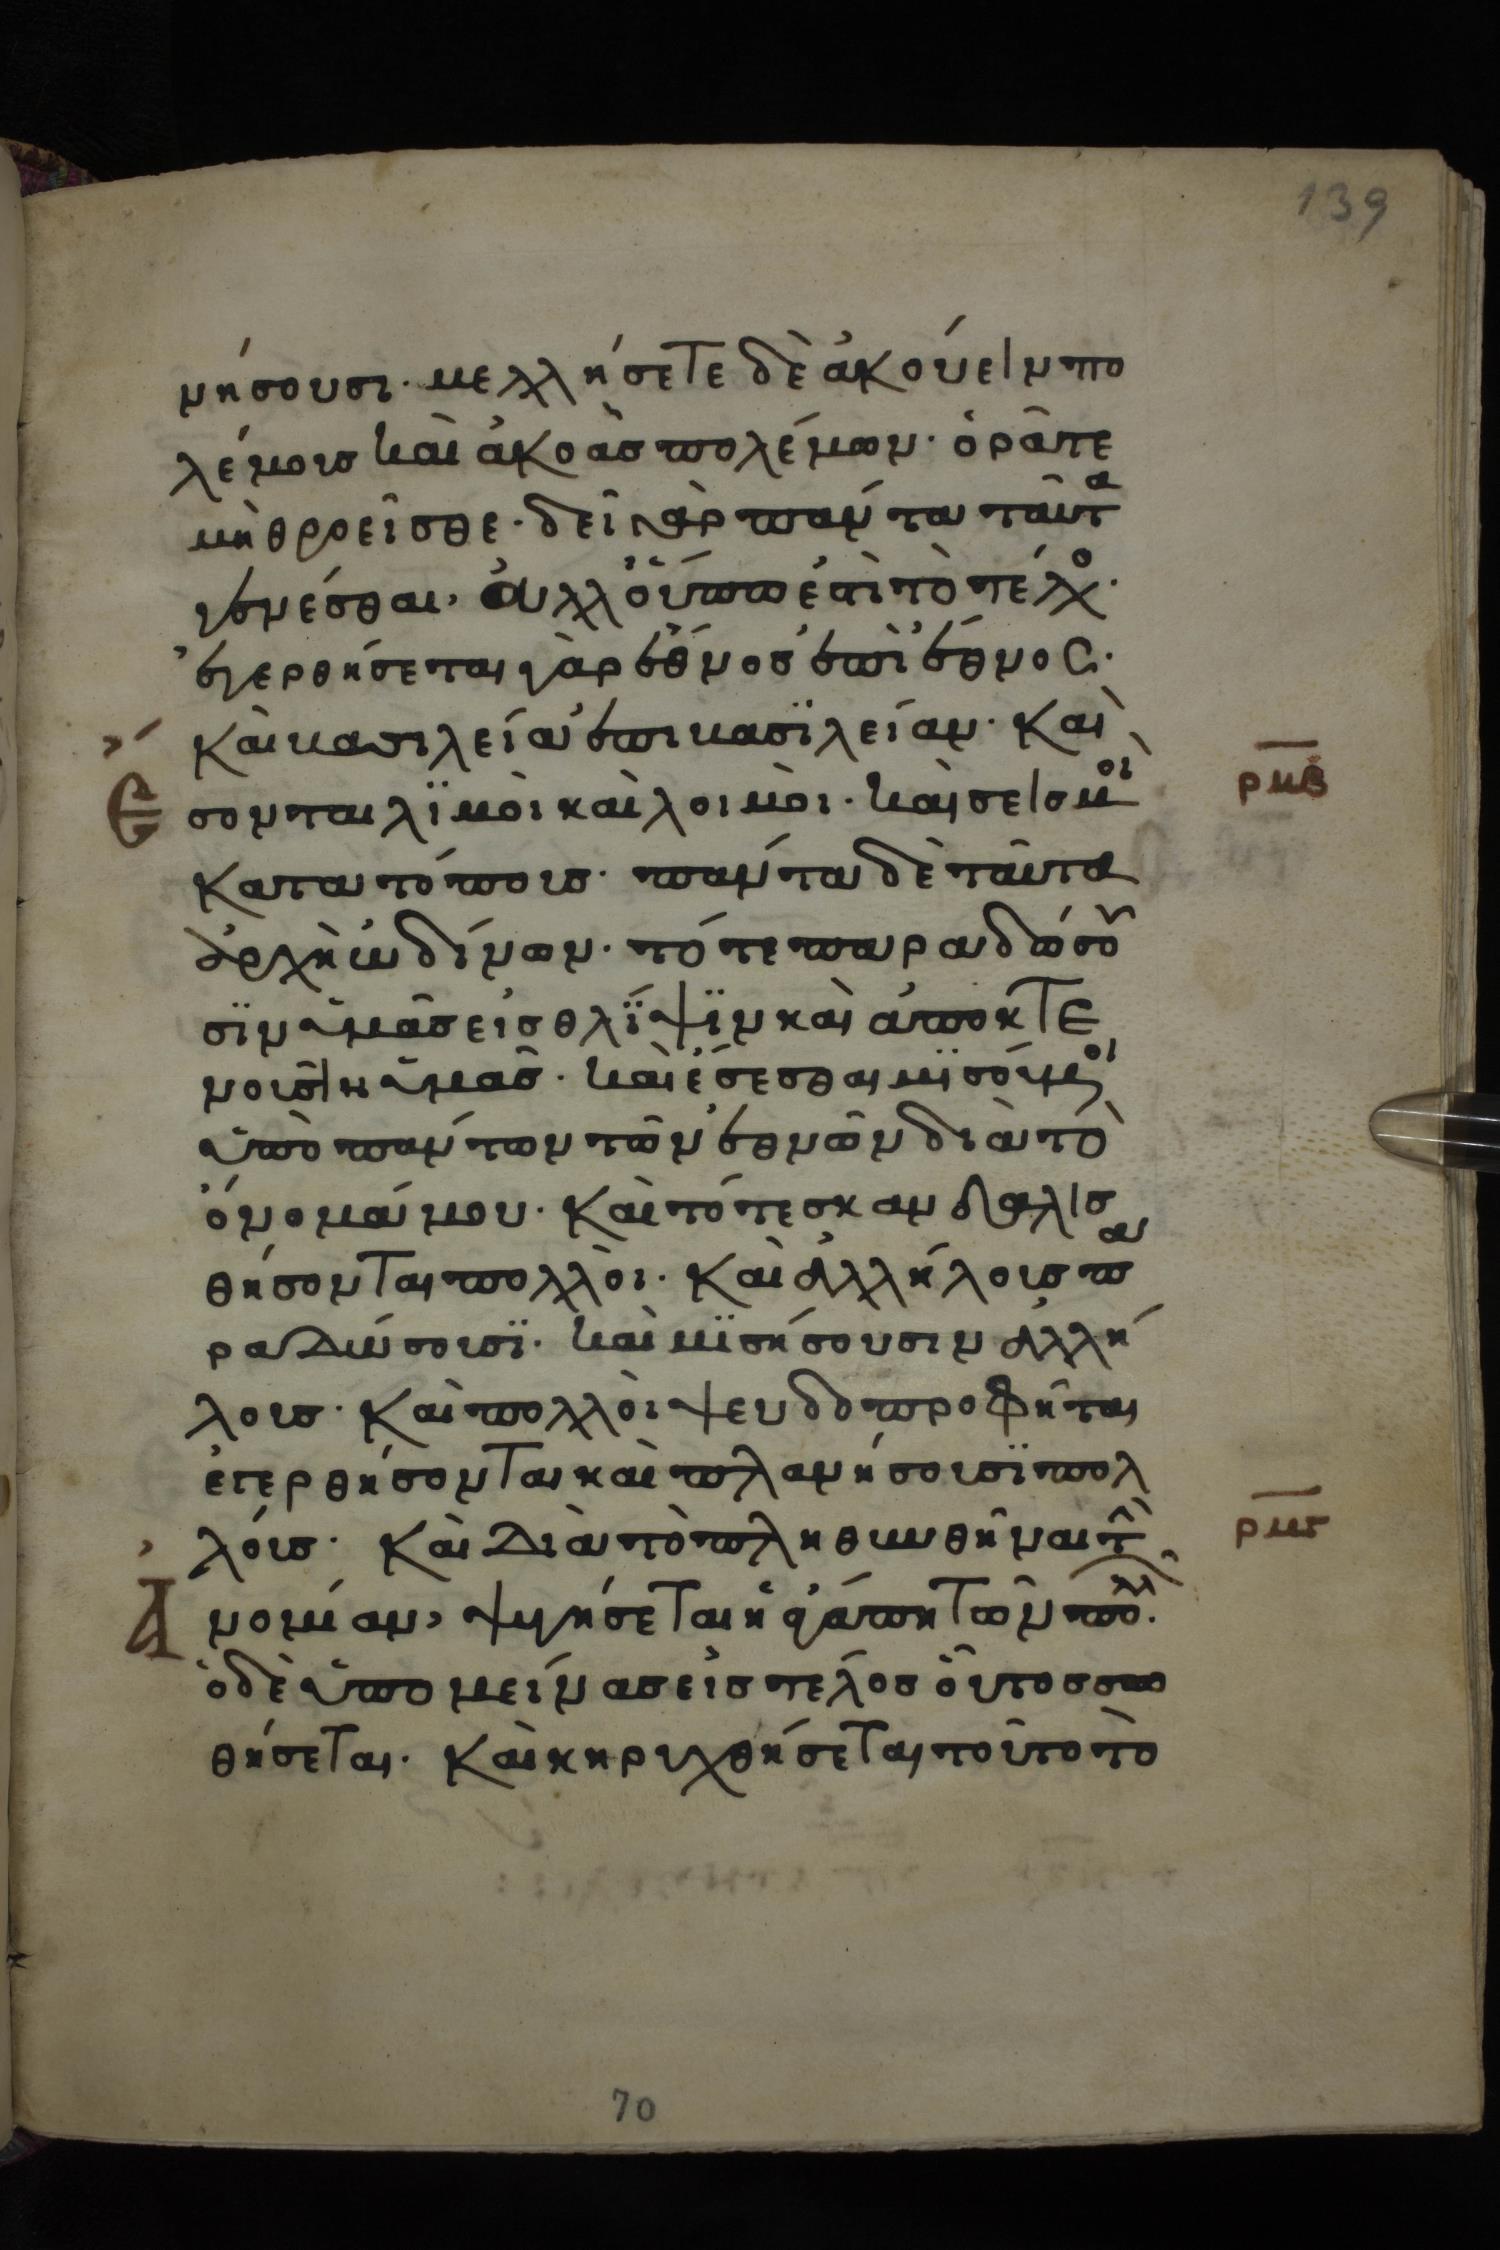 139
νήσουσι· μελλήσετε δὲ ἀκούειν πο
λέμους καὶ ἀκοὰς πολέμων· ὁρᾶτε
μὴ θροεῖσθε· δεῖ γὰρ πάντα ταῦτα
γενέσθαι, ἀλλ οὔπω ἐστὶ τὸ τέλος·
ἐγερθήσεται γὰρ ἔθνος ἐπὶ ἔθνος·
καὶ βασιλεία ἐπι βασϊλείαν· καὶ
ἔσονται λϊμοὶ καὶ λοιμοὶ· καὶ σεισμοὶ
ρμβ
κατα τόπους· πάντα δὲ ταῦτα
ἀρχὴ ὠδίνων· τότε παραδώσου
σϊν ὑμᾶς εἰς θλίψϊν καὶ ἀποκτε
νοῦσιν ὑμᾶς· καὶ ἔσεσθαι μϊσούμενοι
ὑπὸ πάντων τῶν ἐθνῶν διὰ τὸ
ὄνομά μου· καὶ τότε σκανδαλισ
θήσονται πολλοὶ· καὶ ἀλλήλους πα
ραδώσουσϊ· καὶ μϊσήσουσιν ἀλλή
λους· καὶ πολλοὶ ψευδοπροφῆται
ἐγερθήσονται καὶ πλανήσουσϊ πολ
λούς· καὶ διὰ τὸ πληθυνθῆναι τὴν
ρμγ
ἀνομίαν, ψυγήσεται ἡ ἀγάπη τῶν πολλῶν·
ὁ δὲ ὑπομείνας εἰς τέλος οὗτος σω
θήσεται· καὶ κηρυχθήσεται τοῦτο τὸ
70